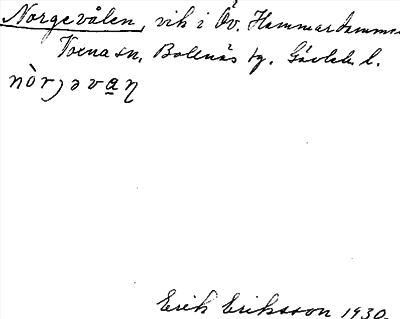 Norgevålen, vik i Öv. Hammardammen
Voxna sn, Bollnäs tg. Gävleb. l.
nòrjəvaɳ
Erik Eriksson 1930.